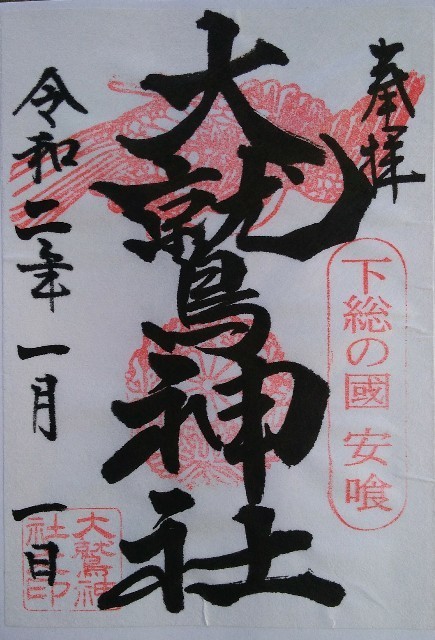 奉拝
下総の國 安喰
大鷲神社
令和二年 一月 一日
大鷲神
社之印